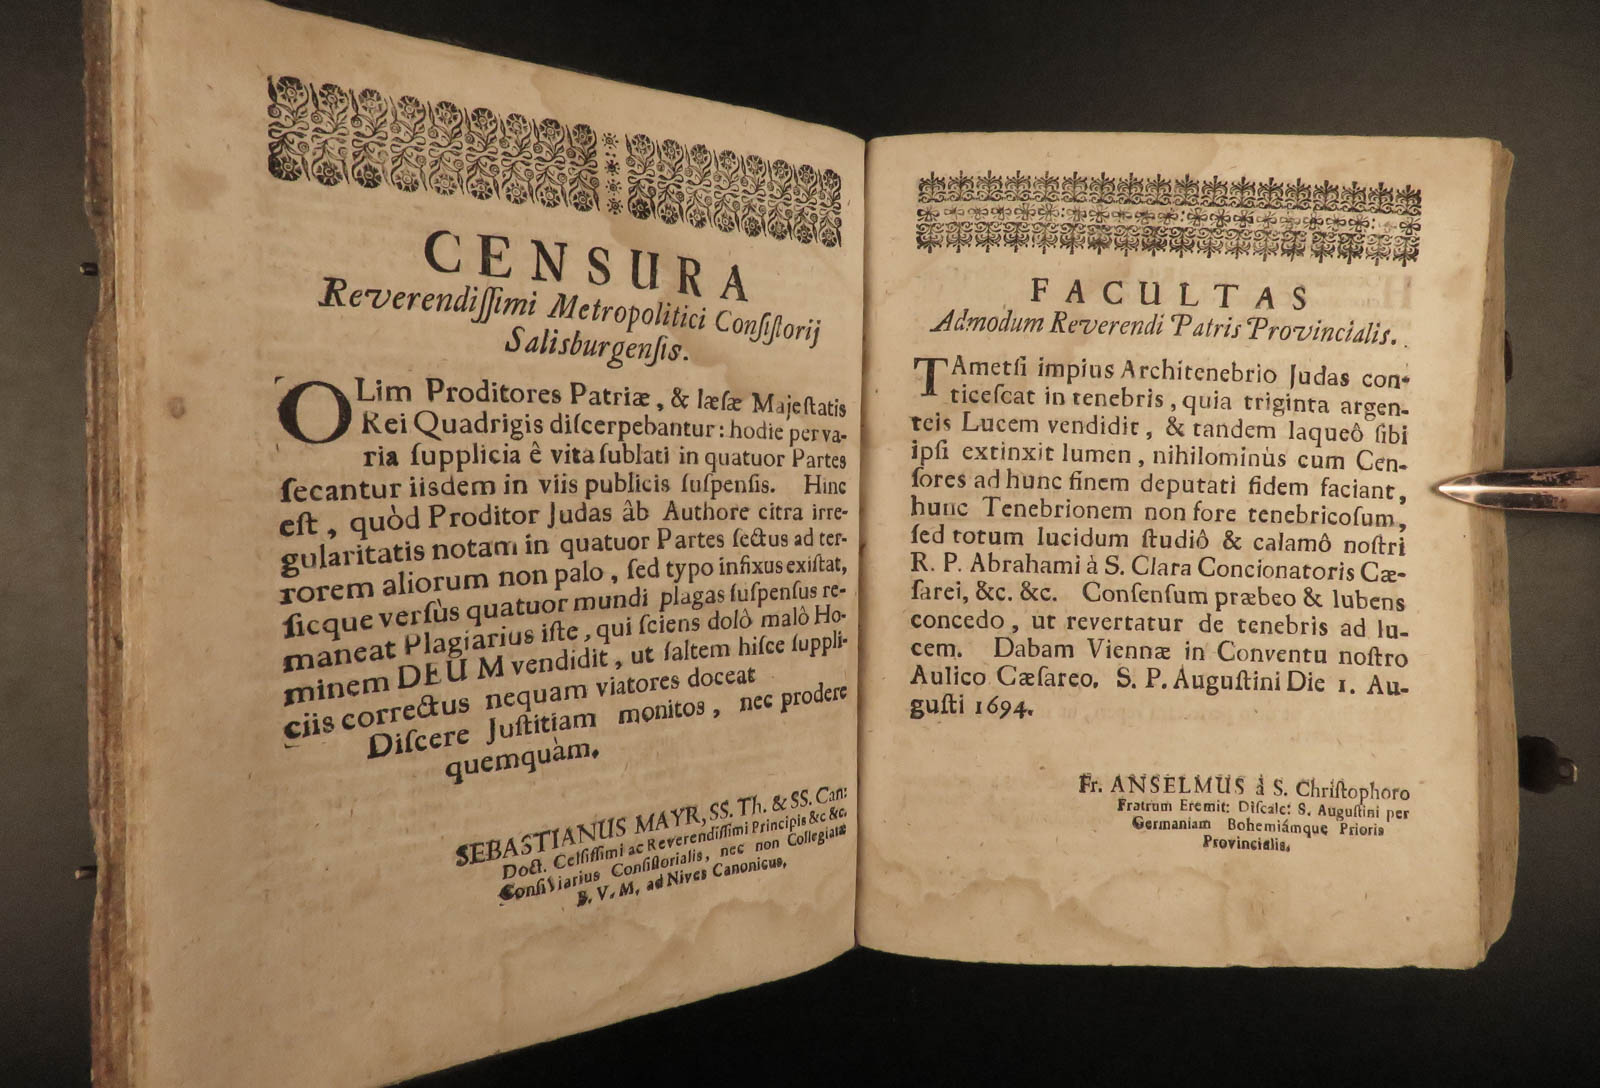 CENSURA
Reverendiſſimi Metropolitici Conſiſtorij
Salisburgenſis.
OLim Proditores Patriæ, & læſæ Majeſtatis
Rei Quadrigis diſcerpebantur: hodie per va-
ria ſupplicia ê vita ſublati in quatuor Partes
ſecantur iisdem in viis publicis ſuſpenſis. Hinc
eſt, quòd Proditor Judas âb Authore citra irre-
gularitatis notam in quatuor Partes ſectus ad ter-
rorem aliorum non palo, ſed typo infixus exiſtat,
ſicque verſùs quatuor mundi plagas ſuſpenſus re-
maneat Plagiarius iſte, qui ſciens dolô malô Ho-
minem DEUM vendidit, ut ſaltem hiſce ſuppli-
ciis correctus nequam viatores doceat
Diſcere Juſtitiam monitos, nec prodere
quemquàm.
SEBASTIANUS MAYR, SS. Th. & SS. Can:
Doct. Celſiſſimi ac Reverendiſſimi Principis &c &c.
Conſiliarius Conſiſtorialis, nec non Collegiatæ
B. V. M. ad Nives Canonicus.
FACULTAS
Admodum Reverendi Patris Provincialis.
TAmetſi impius Architenebrio Judas con-
ticeſcat in tenebris, quia triginta argen-
teis Lucem vendidit, & tandem laqueô ſibi
ipſi extinxit lumen, nihilominùs cum Cen-
ſores ad hunc finem deputati fidem faciant,
hunc Tenebrionem non fore tenebricoſum,
ſed totum lucidum ſtudiô & calamô noſtri
R. P. Abrahami à S. Clara Concionatoris Cæ-
ſarei, &c. &c. Conſenſum præbeo & lubens
concedo, ut revertatur de tenebris ad lu-
cem. Dabam Viennæ in Conventu noſtro
Aulico Cæſareo. S. P. Auguſtini Die 1. Au-
guſti 1694.
Fr. ANSELMUS à S. Chriſtophoro
Fratrum Eremit: Diſcalc: S. Auguſtini per
Germaniam Bohemiámque Prioris
Provincialis.